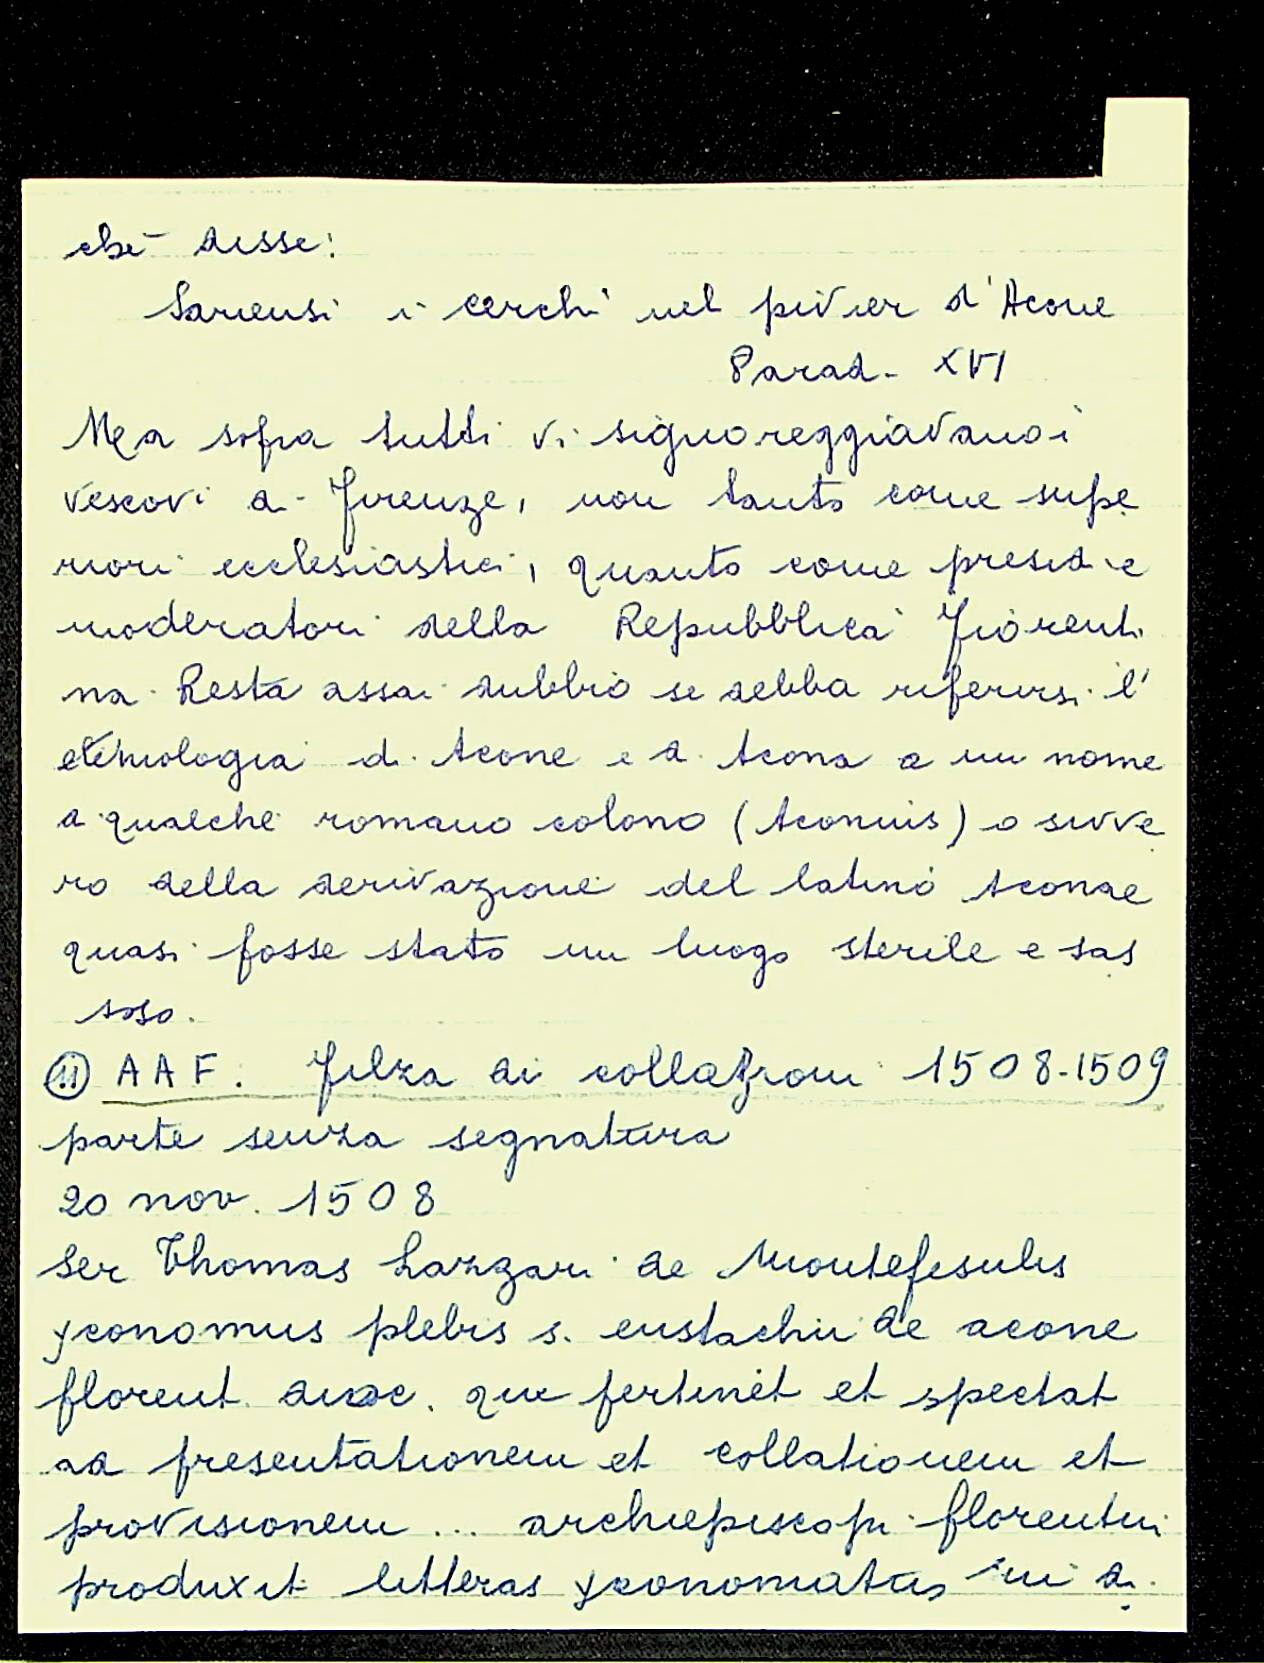 che disse:
Sariensi i cerchi nel pivier d'Acone
Parad. XVI
Ma sopra tutti vi signoreggiavano i
vescovi di Firenze, non tanto come supe
riori ecclesiastici, quanto come presid e
moderatori della Repubblica Fiorenti
na. Resta assai dubbio se debba riferirsi l'
etimologia di Acone e di Acona a un nome
di qualche romano colono (Aconius) o sivve
ro della derivazione del latino Aconae
quasi fosse stato un luogo sterile e sas
soso.
11 AAF. Filza di collazioni 1508-1509
parte senza segnatura
20 nov. 1508
Ser Thomas Lazzari de Montefesulis
yconomus plebis s. eustachii de acone
florent. dioc. que pertinet et spectat
ad presentationem et collationem et
provisionem ... archiepiscopi florentini
produxit litteras yconomatus in di